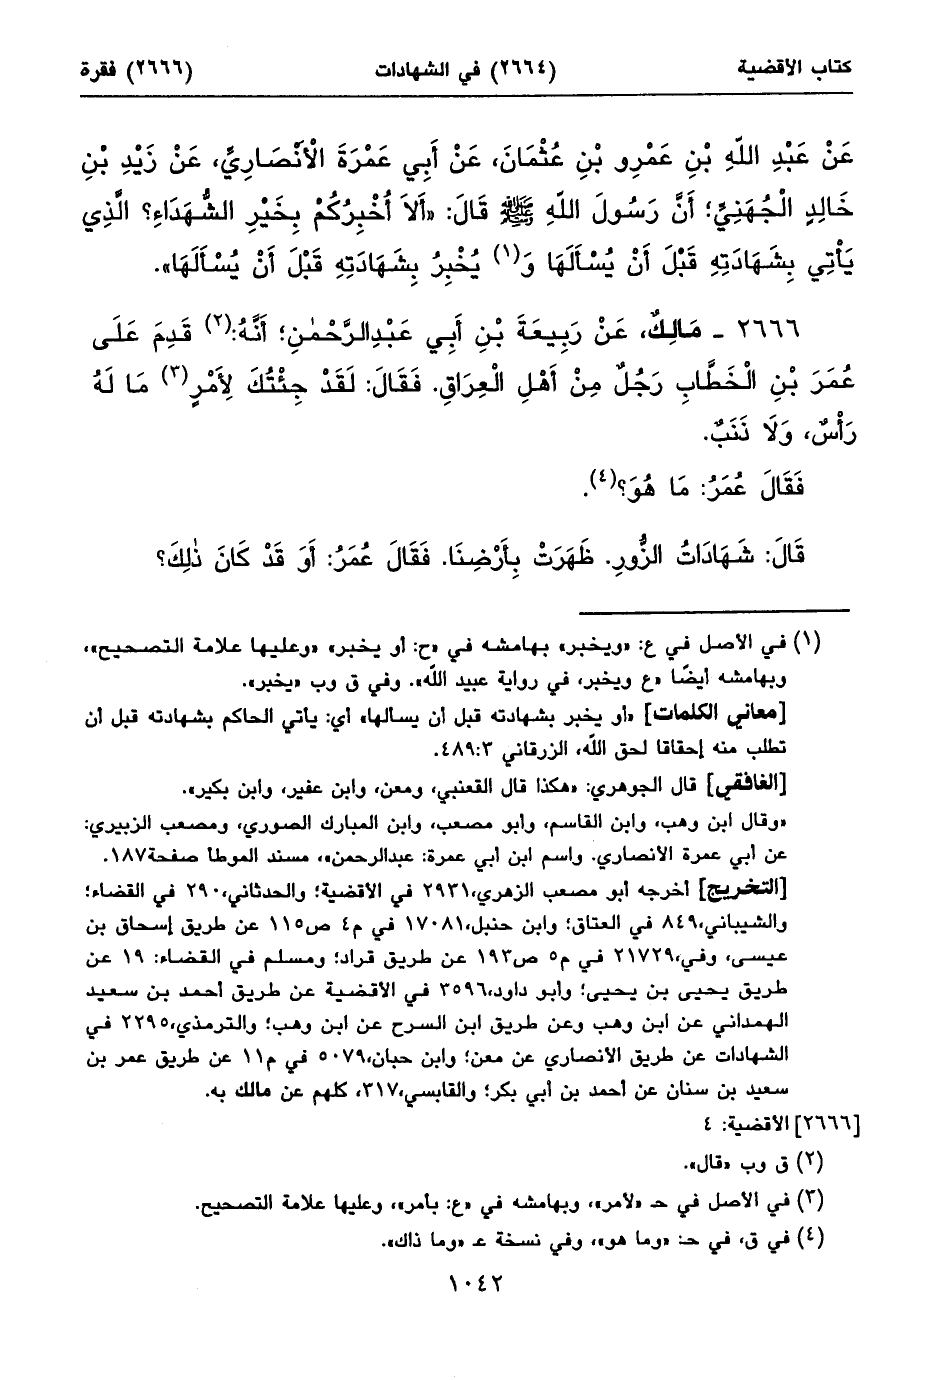 كتاب الأقضية (٢٦٦٤) في الشهادات (٢٦٦٦) فقرة
عَنْ عَبْدِ اللّٰهِ بْنِ عَمْرِو بْنِ عُثْمَانَ، عَنْ أَبِي عَمْرَةَ الْأَنْصَارِيِّ، عَنْ زَيْدِ بْنِ
خَالِدٍ الْجُهَنِيِّ؛ أَنَّ رَسُولَ اللّٰهِ ﷺ قَالَ: «أَلاَ أُخْبِرُكُمْ بِخَيْرِ الشُّهَدَاءِ؟ الَّذِي
يَأْتِي بِشَهَادَتِهِ قَبْلَ أَنْ يُسْأَلَهَا وَ(١) يُخْبِرُ بِشَهَادَتِهِ قَبْلَ أَنْ يُسْأَلَهَا».
٢٦٦٦ - مَالِكٌ، عَنْ رَبِيعَةَ بْنِ أَبِي عَبْدِالرَّحْمٰنِ؛ أَنَّهُ:(٢) قَدِمَ عَلَى
عُمَرَ بْنِ الْخَطَّابِ رَجُلٌ مِنْ أَهْلِ الْعِرَاقِ. فَقَالَ: لَقَدْ جِئْتُكَ لِأَمْرٍ(٣) مَا لَهُ
رَأْسٌ، وَلَا ذَنَبٌ.
فَقَالَ عُمَرُ: مَا هُوَ؟(٤).
قَالَ: شَهَادَاتُ الزُّورِ. ظَهَرَتْ بِأَرْضِنَا. فَقَالَ عُمَرُ: أَوَ قَدْ كَانَ ذٰلِكَ؟
(١) في الأصل في ع: «ويخبر» بهامشه في «ح: أو يخبر» «وعليها علامة التصحيح»،
وبهامشه أيضًا «ع ويخبر، في رواية عبيد الله». وفي ق وب «يخبر».
[معاني الكلمات] «أو يخبر بشهادته قبل أن يسألها» أي: يأتي الحاكم بشهادته قبل أن
تطلب منه إحقاقا لحق الله، الزرقاني ٤٨٩:٣.
[الغافقي] قال الجوهري: «هكذا قال القعنبي، ومعن، وابن عفير، وابن بكير».
«وقال ابن وهب، وابن القاسم، وأبو مصعب، وابن المبارك الصوري، ومصعب الزبيري:
عن أبي عمرة الأنصاري. واسم ابن أبي عمرة: عبدالرحمن»، مسند الموطأ صفحة١٨٧.
[التخريج] أخرجه أبو مصعب الزهري،٢٩٣١ في الأقضية؛ والحدثاني،٢٩٠ في القضاء؛
والشيباني،٨٤٩ في العتاق؛ وابن حنبل،١٧٠٨١ في م٤ ص١١٥ عن طريق إسحاق بن
عيسى، وفي،٢١٧٢٩ في م٥ ص١٩٣ عن طريق قراد؛ ومسلم في القضاء: ١٩ عن
طريق يحيى بن يحيى؛ وأبو داود،٣٥٩٦ في الأقضية عن طريق أحمد بن سعيد
الهمداني عن ابن وهب وعن طريق ابن السرح عن ابن وهب؛ والترمذي،٢٢٩٥ في
الشهادات عن طريق الأنصاري عن معن؛ وابن حبان،٥٠٧٩ في م١١ عن طريق عمر بن
سعيد بن سنان عن أحمد بن أبي بكر؛ والقابسي،٣١٧، كلهم عن مالك به.
[٢٦٦٦] الأقضية: ٤
(٢) ق وب «قال».
(٣) في الأصل في حـ «لأمر»، وبهامشه في «ع: بأمر»، وعليها علامة التصحيح.
(٤) في ق، في حـ: «وما هو»، وفي نسخة عـ «وما ذاك».
١٠٤٢